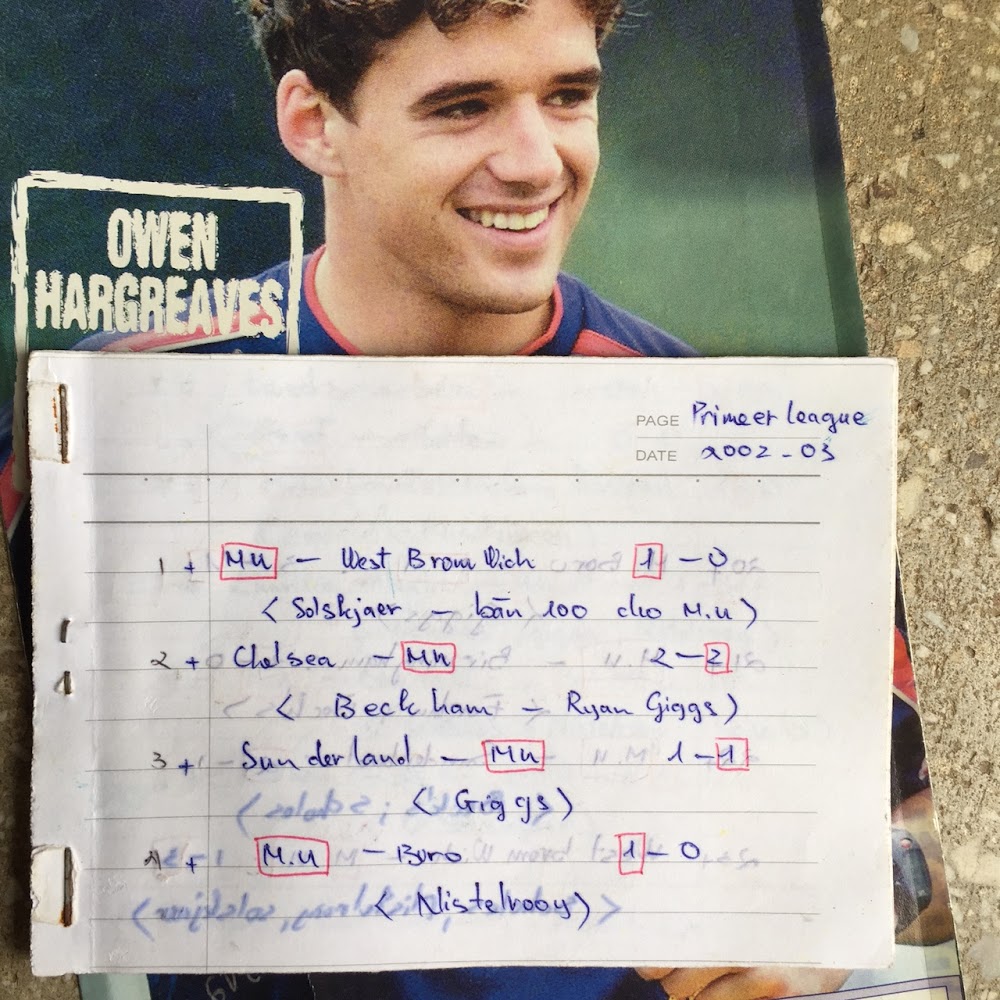 OWEN
HARGREAVES
PAGE Primeer league
DATE 2002 - 03
1 + MU - West Brom Wich 1 - 0
< Solskjaer - bàn 100 cho M.u )
2 + Chelsea - Mu 2 - 2
< Beckham - Ryan Giggs )
3 + Sunderland - Mu 1 - 1
< Giggs )
4 + M.U - Buro 1 - 0
< Nistelrooy )